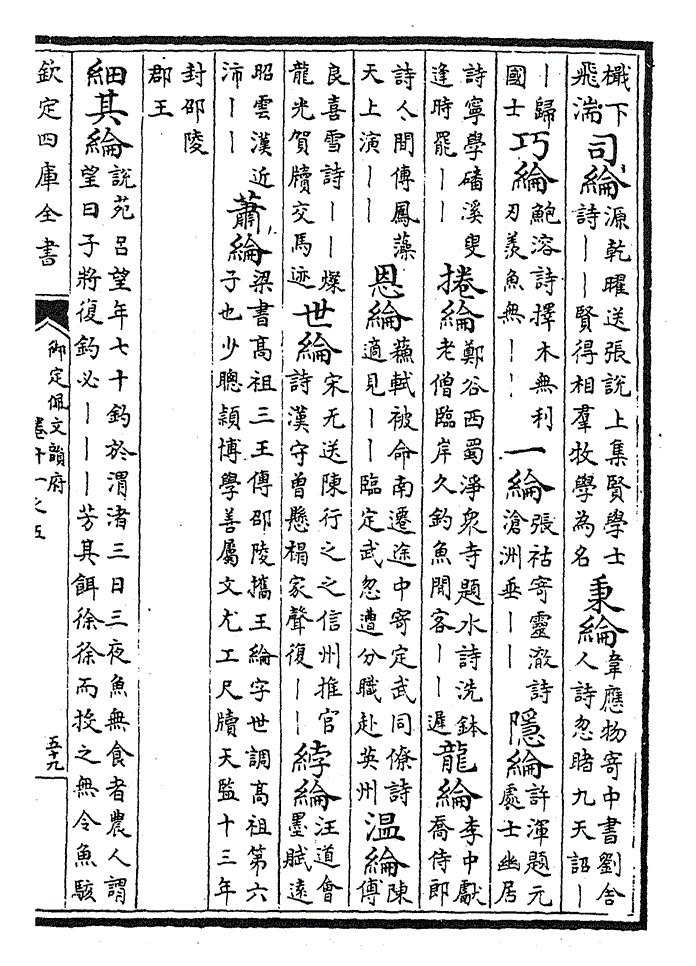 檝下飛湍 司綸 源乾曜送張說上集賢學士詩——賢得相羣牧學為名 秉綸 韋應物寄中書劉舍人詩忽睹九天詔—
—歸國士 巧綸 鮑溶詩擇木無利刃羨魚無—— 一綸 張祜寄靈澈詩滄洲垂—— 隱綸 許渾題元處士幽居
詩寧學磻溪叟逢時罷—— 捲綸 鄭谷西蜀淨衆寺題水詩洗鉢老僧臨岸久釣魚閒客——遲 龍綸 李中獻喬侍郎
詩人間傳鳳藻天上演—— 恩綸 蘇軾被命南遷途中寄定武同僚詩適見——臨定武忽遭分職赴英州 温綸 陳傅
良喜雪詩——燦龍光賀牘交馬迹 世綸 宋无送陳行之之信州推官詩漢守曽懸榻家聲復—— 綍綸 汪道會墨賦遠
昭雲漢近沛—— 蕭綸 梁書高祖三王傳邵陵攜王綸字世調高祖第六子也少聰穎博學善屬文尤工尺牘天監十三年
封邵陵郡王
細其綸 說苑呂望年七十釣於渭渚三日三夜魚無食者農人謂望曰子將復釣必———芳其餌徐徐而投之無令魚駭
欽定四庫全書 御定佩文韻府 卷十一之五 五十九